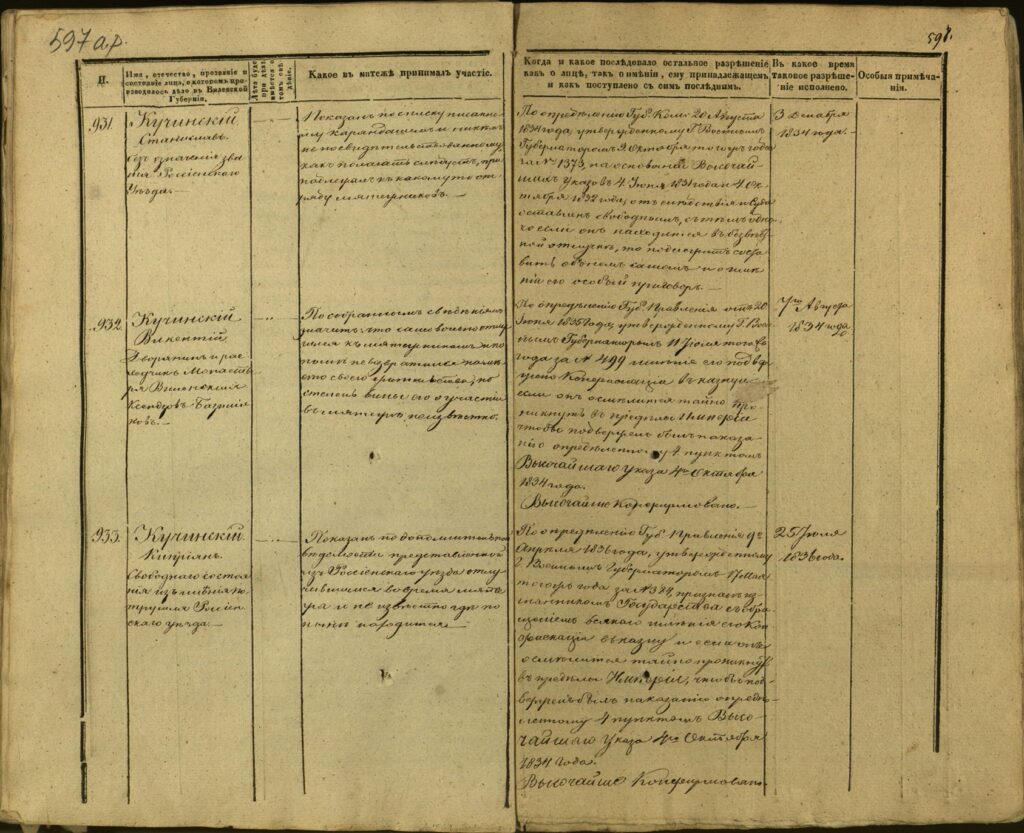 597 а.р.
598.
N.
Имя, отечество, прозваніе и
состояніе лицъ, о которомъ про-
изводилось дѣло въ Виленской
Губерніи.
Какое въ мятежѣ принималъ участіе.
Когда и какое послѣдовало остальное разрѣшеніе
какъ о лицѣ, такъ о имѣніи, ему принадлежащемъ
и какъ поступлено съ симъ послѣднимъ.
Въ какое время
таковое разрѣше-
ніе исполнено.
Особыя примѣча-
нія.
931.
Кучинскій
Станиславъ.
безъ означенія зва-
нія Россіенскаго
Уѣзда.
Показанъ по списку писанно-
му карандашемъ и никѣмъ
не посвидѣтельствованному,
какъ полагать слѣдуетъ, при-
надлежалъ къ какому то от-
ряду мятежниковъ.
По опредѣленію Губ: Ком: 20 Августа
1834 года, утвержденному Г. Военнымъ
Губернаторомъ 9 Октября того же года
за № 1373, на основаніи Высочай-
шихъ Указовъ 4 Іюня 1831 года и 4 Ок-
тября 1832 года, отъ слѣдствія и Суда
оставленъ свободнымъ, съ тѣмъ одна-
ко если онъ находится въ безвѣст-
ной отлучкѣ, то
вить объ немъ самомъ и о имѣ-
ніи его особый приговоръ.
3 Декабря
1834 года.
932.
Кучинскій
Викентій
Дворянинъ и рас-
ходчикъ Монасты-
ря Виленскихъ
Ксендзовъ
ковъ.
По собраннымъ свѣдѣніямъ
значитъ: что самовольно отлу-
чился къ мятежникамъ и по
томъ не возвратился на мѣ-
сто своего жительства; но
степень вины его и участія
въ мятежѣ неизвѣстно.
По опредѣленію Губ: Правленія отъ 20
Іюня 1835 года, утвержденному Г. Воен-
нымъ Губернаторомъ 11 Іюля того же
года за № 499 имѣніе его подвер-
гнуто Конфискаціи въ казну,
если онъ осмѣлится тайно про-
никнуть въ предѣлы Имперіи
чтобы подверженъ былъ наказа-
нію опредѣленному 4 пунктомъ
Высочайшаго Указа 4го Октября
1834 года.
Высочайше Конфирмовано.
7го Августа
1834 года
933.
Кучинскій
Кипріянъ.
Свободнаго состоя-
нія изъ имѣнія По-
Россіен-
скаго уѣзда.
Показанъ по дополнительной
вѣдомости представленной
изъ Россіенскаго уѣзда отлу-
чившимся во время мяте-
жа и не извѣстно гдѣ по
нынѣ находится
По опредѣленію Губ: Правленія 9го
Апрѣля 1836 года, утвержденному
Г. Военнымъ Губернаторомъ 17 Мая
того года за № 384 признанъ из-
гнанникомъ Государства съ обра-
щеніемъ всякаго имѣнія его Кон-
фискаціи въ казну и если онъ
осмѣлится тайно проникнуть
въ предѣлы Имперіи, чтобъ под-
верженъ былъ наказанію опредѣ-
ленному 4 пунктомъ Высо-
чайшаго Указа 4го Октября
1834 года.
Высочайше Конфирмовано.
25 Іюля
1836 года.